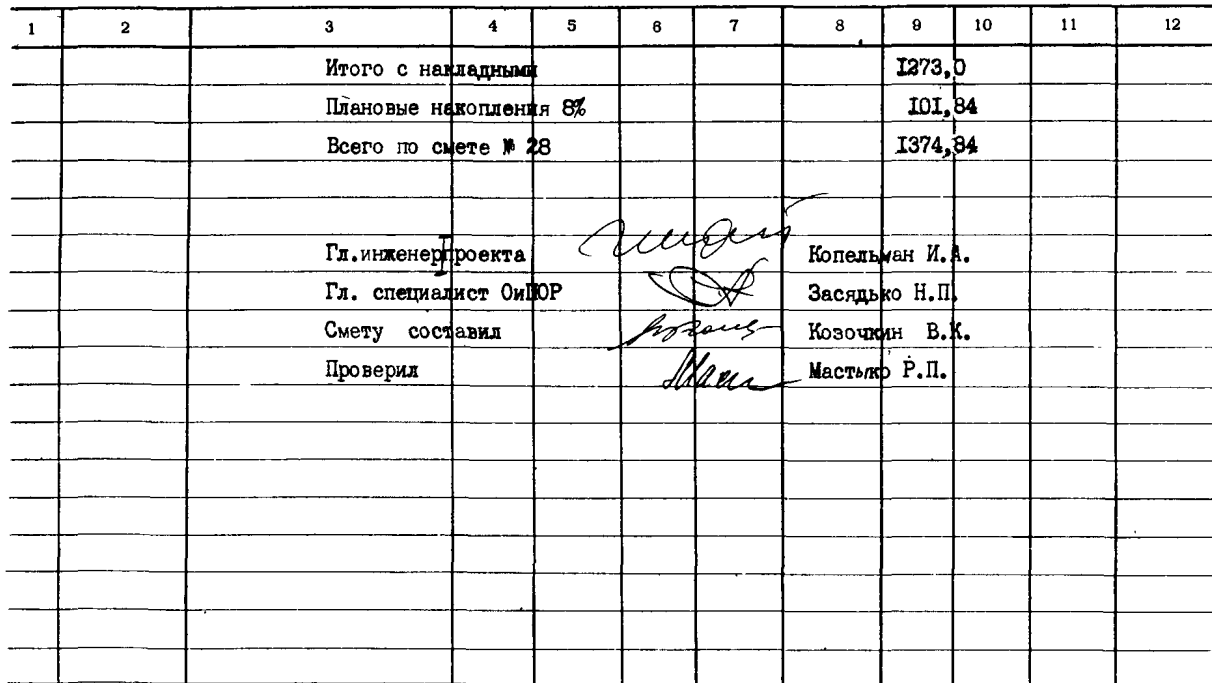 1 2 3 4 5 6 7 8 9 10 11 12
Итого с накладными 1273,0
Плановые накопления 8% 101,84
Всего по смете № 28 1374,84
Гл.инженер проекта Копельман И.А.
Гл. специалист ОиПОР Засядько Н.П.
Смету составил Козочкин В.К.
Проверил Мастыко Р.П.